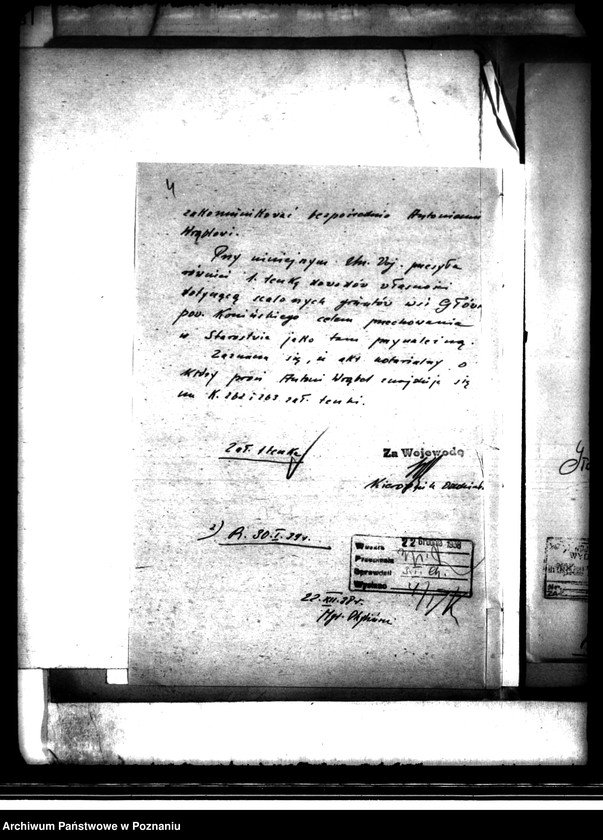 4
zakomunikować bezpośrednio Antoniemu
Wrąblowi.
Przy niniejszym Urz. Woj. przesyła
również 1. teczkę dowodów własności
dotyczącą scalonych gruntów wsi
pow. Konińskiego celem przechowania
w Starostwie jako tam przynależną.
Zaznacza się, iż akt notarialny o
który prosi Antoni Wrąbel znajduje się
na K. 262 i 263 zał. teczki.
Zał. 1 teczka
Za Wojewodę
Kierownik Oddziału
2) R. 30.I.39 r.
22 Grudz. 1938
Przepisał
Sprawdził
Wysłano
22.XII.38 r.
Mgr.
Archiwum Państwowe w Poznaniu